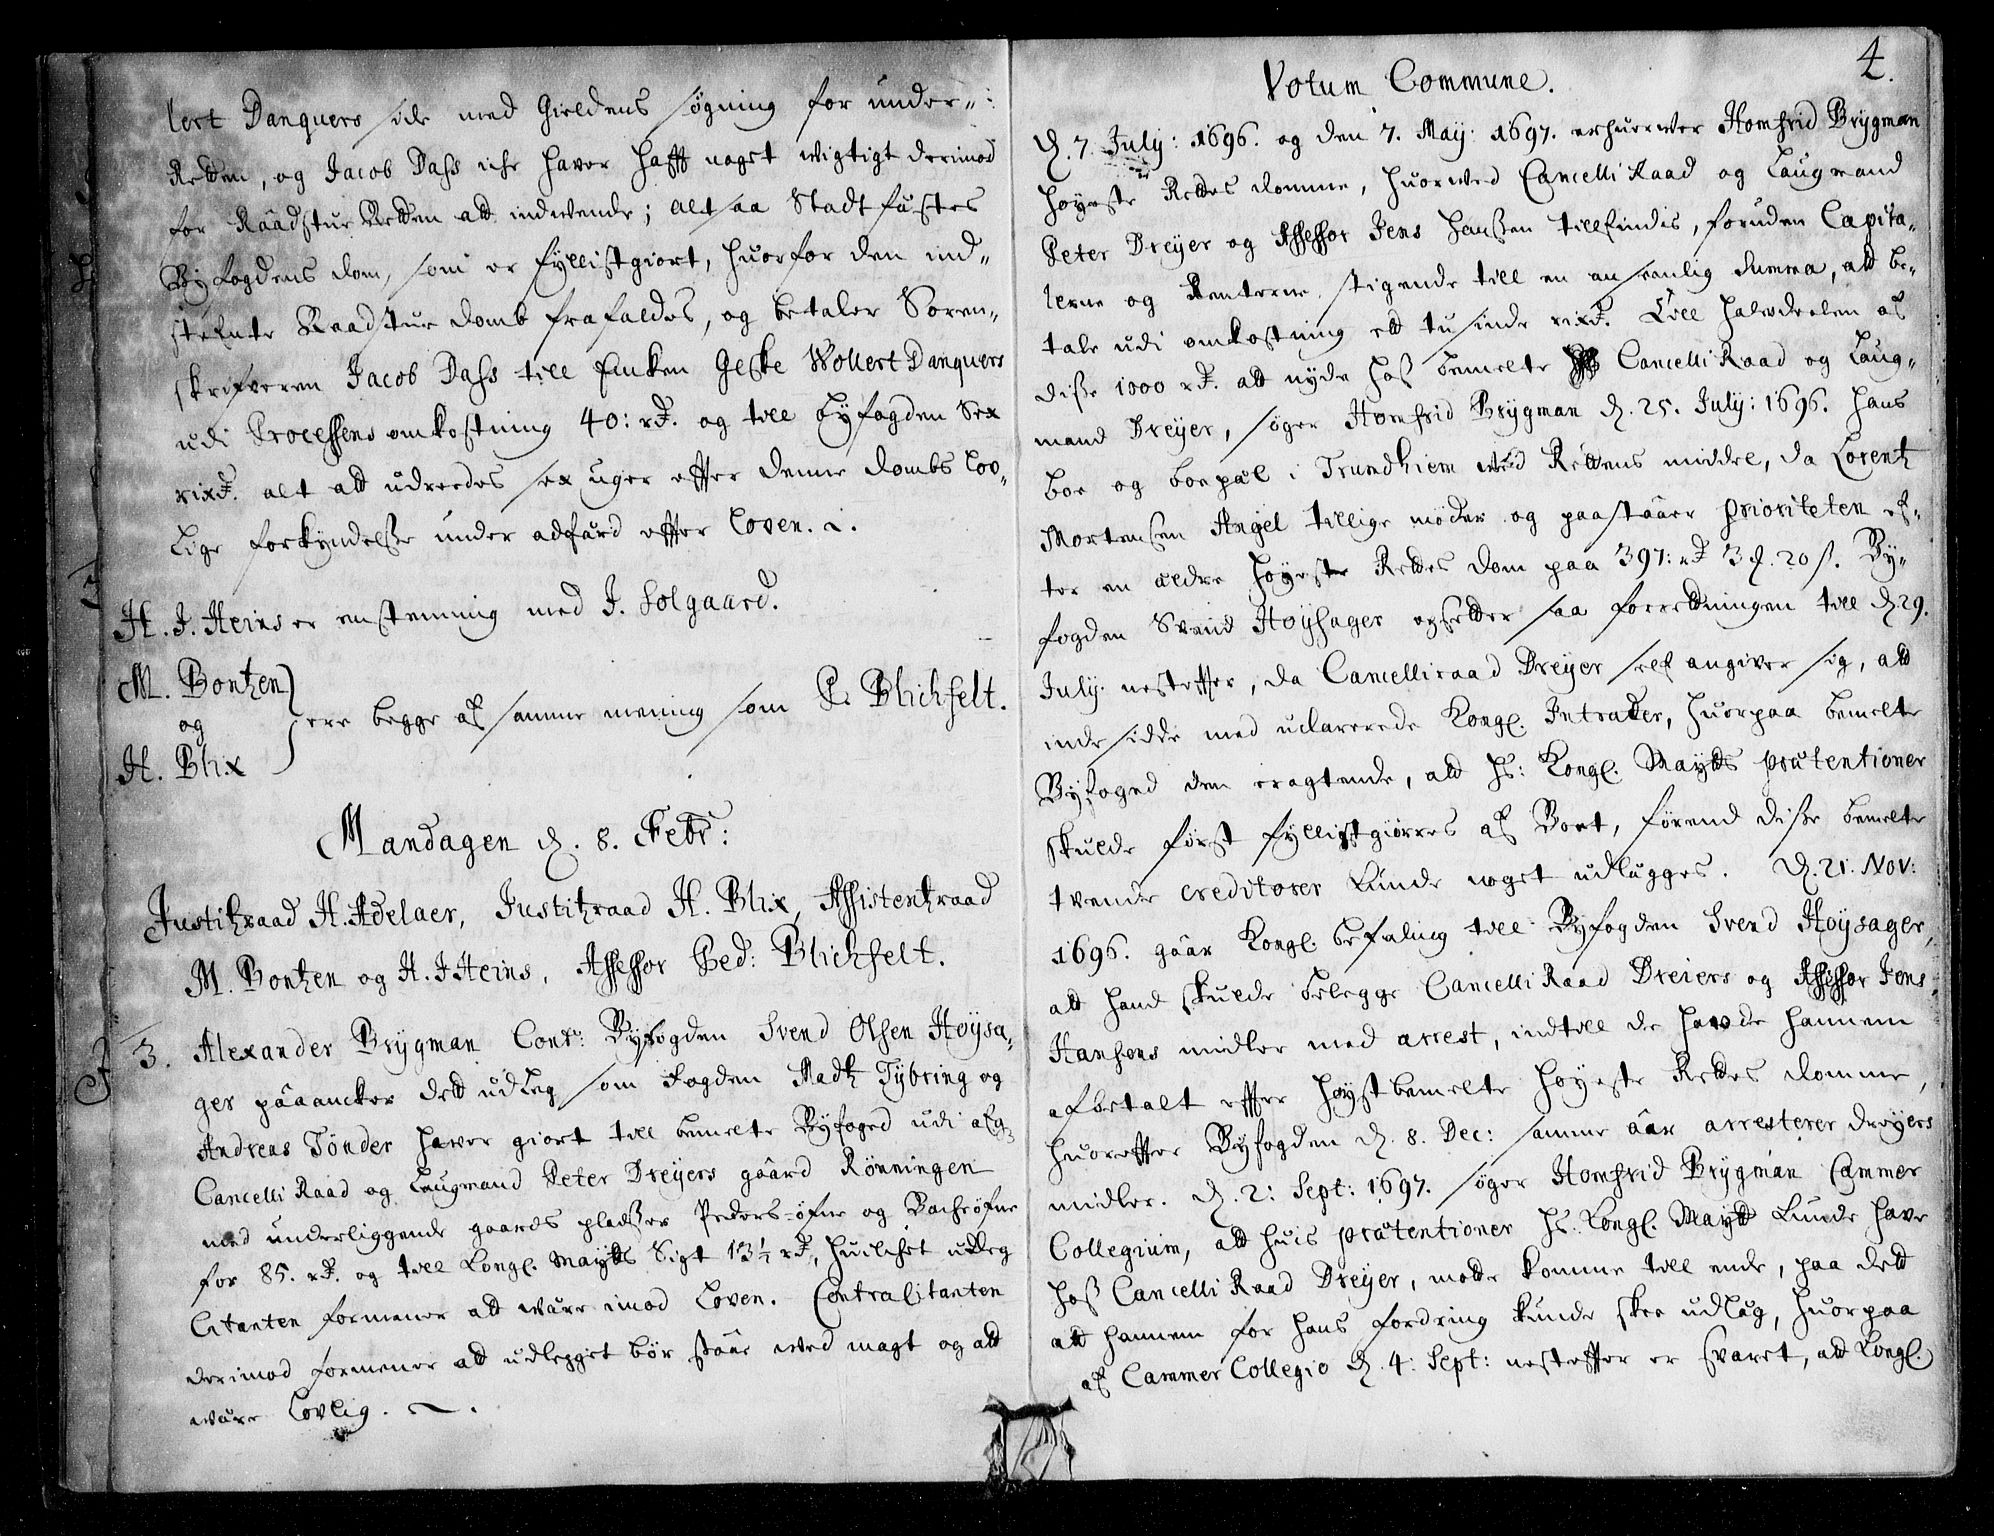 lert Danquers side med Gieldens søgning for under-:
Retten, og Jacob Dass iche haver hafft noget wigtigt derimod
for Raadstue Retten att indwende; alt saa Stadtfæstes
Byfogdens dom, som er fyllistgiort, huorfor den ind-
stefnte Raadstue domb frafaldes, og betaler Soren-
skrifveren Jacob Dass till Enken Geske Wollert Danquers
udi Processens omkostning 40: rd. og till byfogden Sex
rixd. alt att udreedes sex uger effter denne dombs lov-
lige forkyndelse under adfærd effter loven.
H. J. Heins er enstemmig med J. Solgaard.
M. Bontzen
og
H. Blix
ere begge af samme mening som P. Blichfelt.
Mandagen d. 8. Febr:
Justitzraad H. Adelaer, Justitzraad H. Blix, Assistentzraad
M. Bontzen og H. J. Heins, Assessor Ped: Blichfelt.
3. Alexander Brygman Contr: Byfogden Svend Olsen Høysa-
ger påaancker dett udleg som Fogden Madtz Tybring og
Andreas Tønder haver giort till bemelte Byfoged udi afg:
Cancelli Raad og Laugmand Peter Dreyers gaard Rønningen
med underliggende gaards pladser Peders-øfne og Bachøfne
for 85. rd. og till Kongl. Maytts Sigt 13½ rd, huilchet udleg
Citanten formener att wære imod Loven. Contracitanten
derimod formener att udlegget bør staae wed magt og att
wære Lovlig.
4.
Votum Commune.
D. 7. July: 1696. og den 7. May: 1697. erhuerver Homfrid Brygman
Høyeste Rettes domme, huorved Cancelli Raad og Laugmand
Peter Dreyer og Assessor Jens Hansen tillfindis, foruden Capita-
lerne og Renterne, stigende till en anseenlig Summa, att be-
tale udi omkostning ett tusinde rixd. Till halvdeelen af
disse 1000 rd. att nyde hos bemelte Cancelli Raad og Laug-
mand Dreyer, søger Homfrid Brygman d. 25. July: 1696. hans
boe og boepæl i Trundhiem wed Rettens middel, da Lorentz
Mortensen Angel tillige møder og paastaaer prioriteten ef-
ter en ældre Høyeste Rettes dom paa 397: rd 3 . 20 s. By-
fogden Svend Høysager opsetter saa forretningen till d. 29.
July. nesteffter, da Cancelliraad Dreyer self angiver sig, att
inde sidde med uclarerede Kongl. Intrader, huorpaa bemelte
Byfoged den eragtende, att Hs: Kongl. Maytts prætentioner
skulde først fyllistgiørres af Boet, førend disse bemelte
tvende creditorer kunde noget udlægges. D. 21. Nov:
1696. gaar Kongl. befaling till Byfogden Svend Høysager,
att hand skulde belegge Cancelli Raad Dreiers og Assessor Jens
Hansens midler med arrest, indtill de havde hannem
afbetalt effter høystbemelte Høyeste Rettes domme,
huoreffter Byfogden d. 8. Dec: samme aar arresterer Dreyers
midler. D. 2: Sept: 1697. søger Homfrid Brygman Cammer
Collegium, att huis prætentioner Hs. Kongl. Maytt kunde have
hos Cancelli Raad Dreyer, motte komme till ende, paa dett
att hannem for hans fordring kunde skee udlæg, huorpaa
af Cammer Collegio d. 4: Sept: nesteffter er svaret, att Kongl.